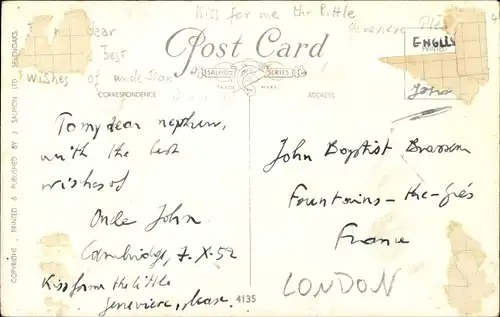 Kiss for me the little
dear
Best
wishes of
Post Card
ENGLIS
PRINTED
SALMON SERIES
TRADE MARK
CORRESPONDENCE
ADDRESS
John
To my dear nephew,
with the best
wishes of
Oncle John.
Cambridge, 7.X.52
Kiss form the little
Genevieve, please.
4135
John Baptist
Fountains-the-
France
LONDON
COPYRIGHT. PRINTED & PUBLISHED BY J SALMON LTD SEVENOAKS.